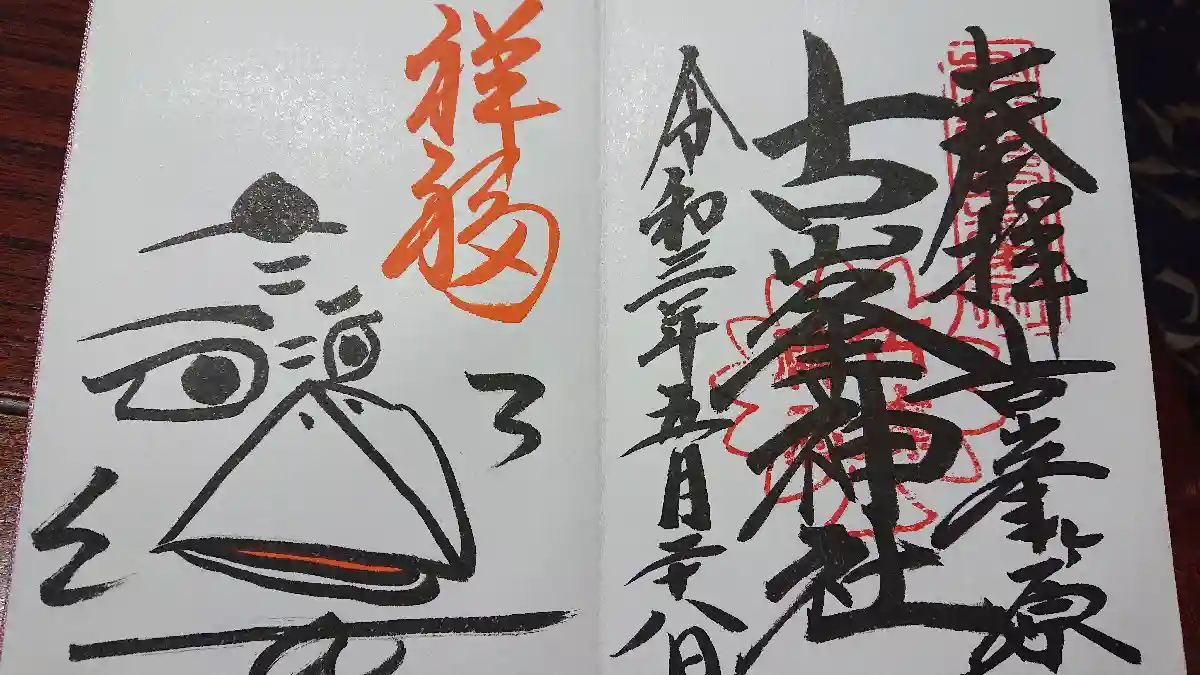 奉拝 古峯ヶ原
古峯神社
令和三年五月二十八日
祥福